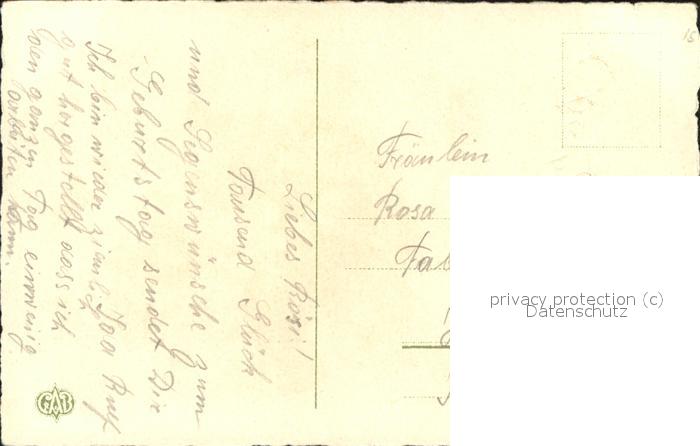 Liebes Rösi!
Tausend Glück
und Segenswünsche zum
Geburtstag sendet Dir
Ida Ruef
Ich bin wieder zieml.
gut hergestellt dass ich
den ganzen Tag einwenig
arbeiten kann.
Fräulein
Rosa
Fa
privacy protection (c)
Datenschutz
GAB
15